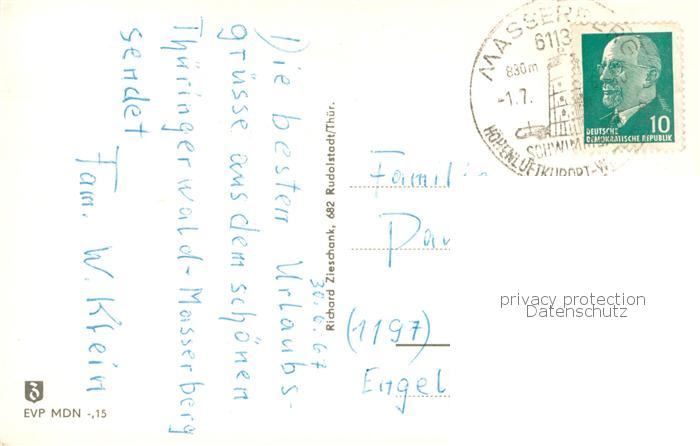 30.6.67
Die besten Urlaubs-
grüsse aus dem schönen
Thüringerwald-Masserberg
sendet
Fam. W. Klein
Richard Zieschank, 682 Rudolstadt/Thür.
EVP MDN -,15
MASSERBERG
6113
830m
-1.7.
SCHWIMM
HÖHENLUFTKURORT-W
DEUTSCHE
DEMOKRATISCHE REPUBLIK
10
Famili
Pa
(1197)
Engel
privacy protection
Datenschutz